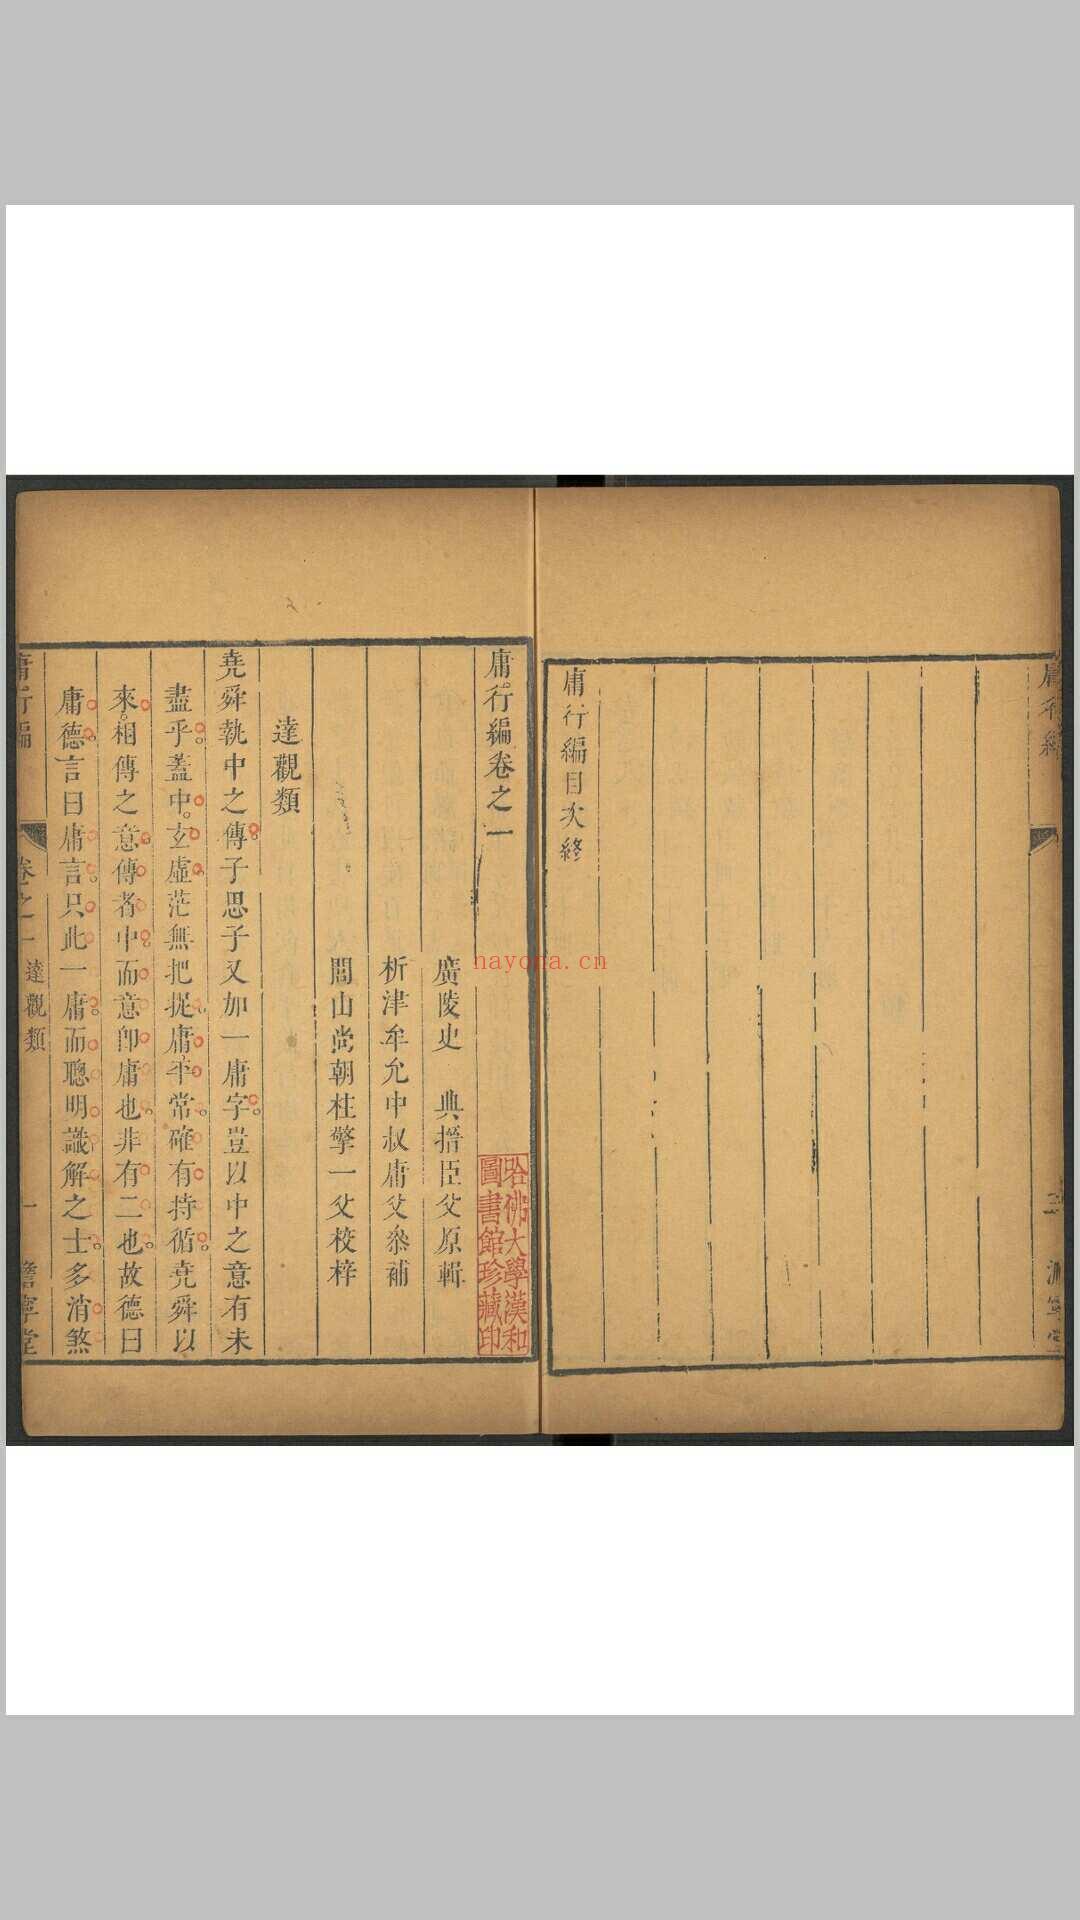 庸行編
三
澹寧堂
庸行編目次終
庸行編卷之一
廣陵史 典搢臣父原輯
析津牟允中叔庸父叅補
閭山尚朝柱擎一父校梓
達觀類
堯舜執中之傳子思子又加一庸字豈以中之意有未
盡乎葢中玄虛茫無把捉庸平常確有持循堯舜以
來相傳之意傳者中而意卽庸也非有二也故德曰
庸德言曰庸言只此一庸而聰明識解之士多消煞
庸行編
卷之一
達觀類
一
澹寧堂
哈佛大學漢和
圖書館珍藏印
nayona.cn